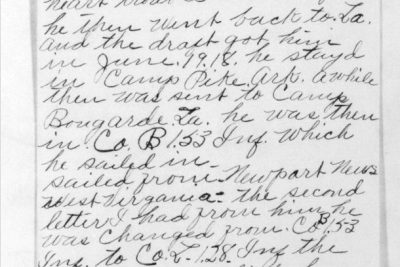 he then went back to La.
and the draft got him
in June. 19.18. he stayd
in Camp Pike. Ark. awhile
then was sent to Camp
Bougarde. La. he was then
in Co. B 153 Inf. which
he sailed in
sailed from Newport News
West Virgania - the second
letter I had from him he
was changed from Co B 153
Inf. to Co. L - 128. Inf the